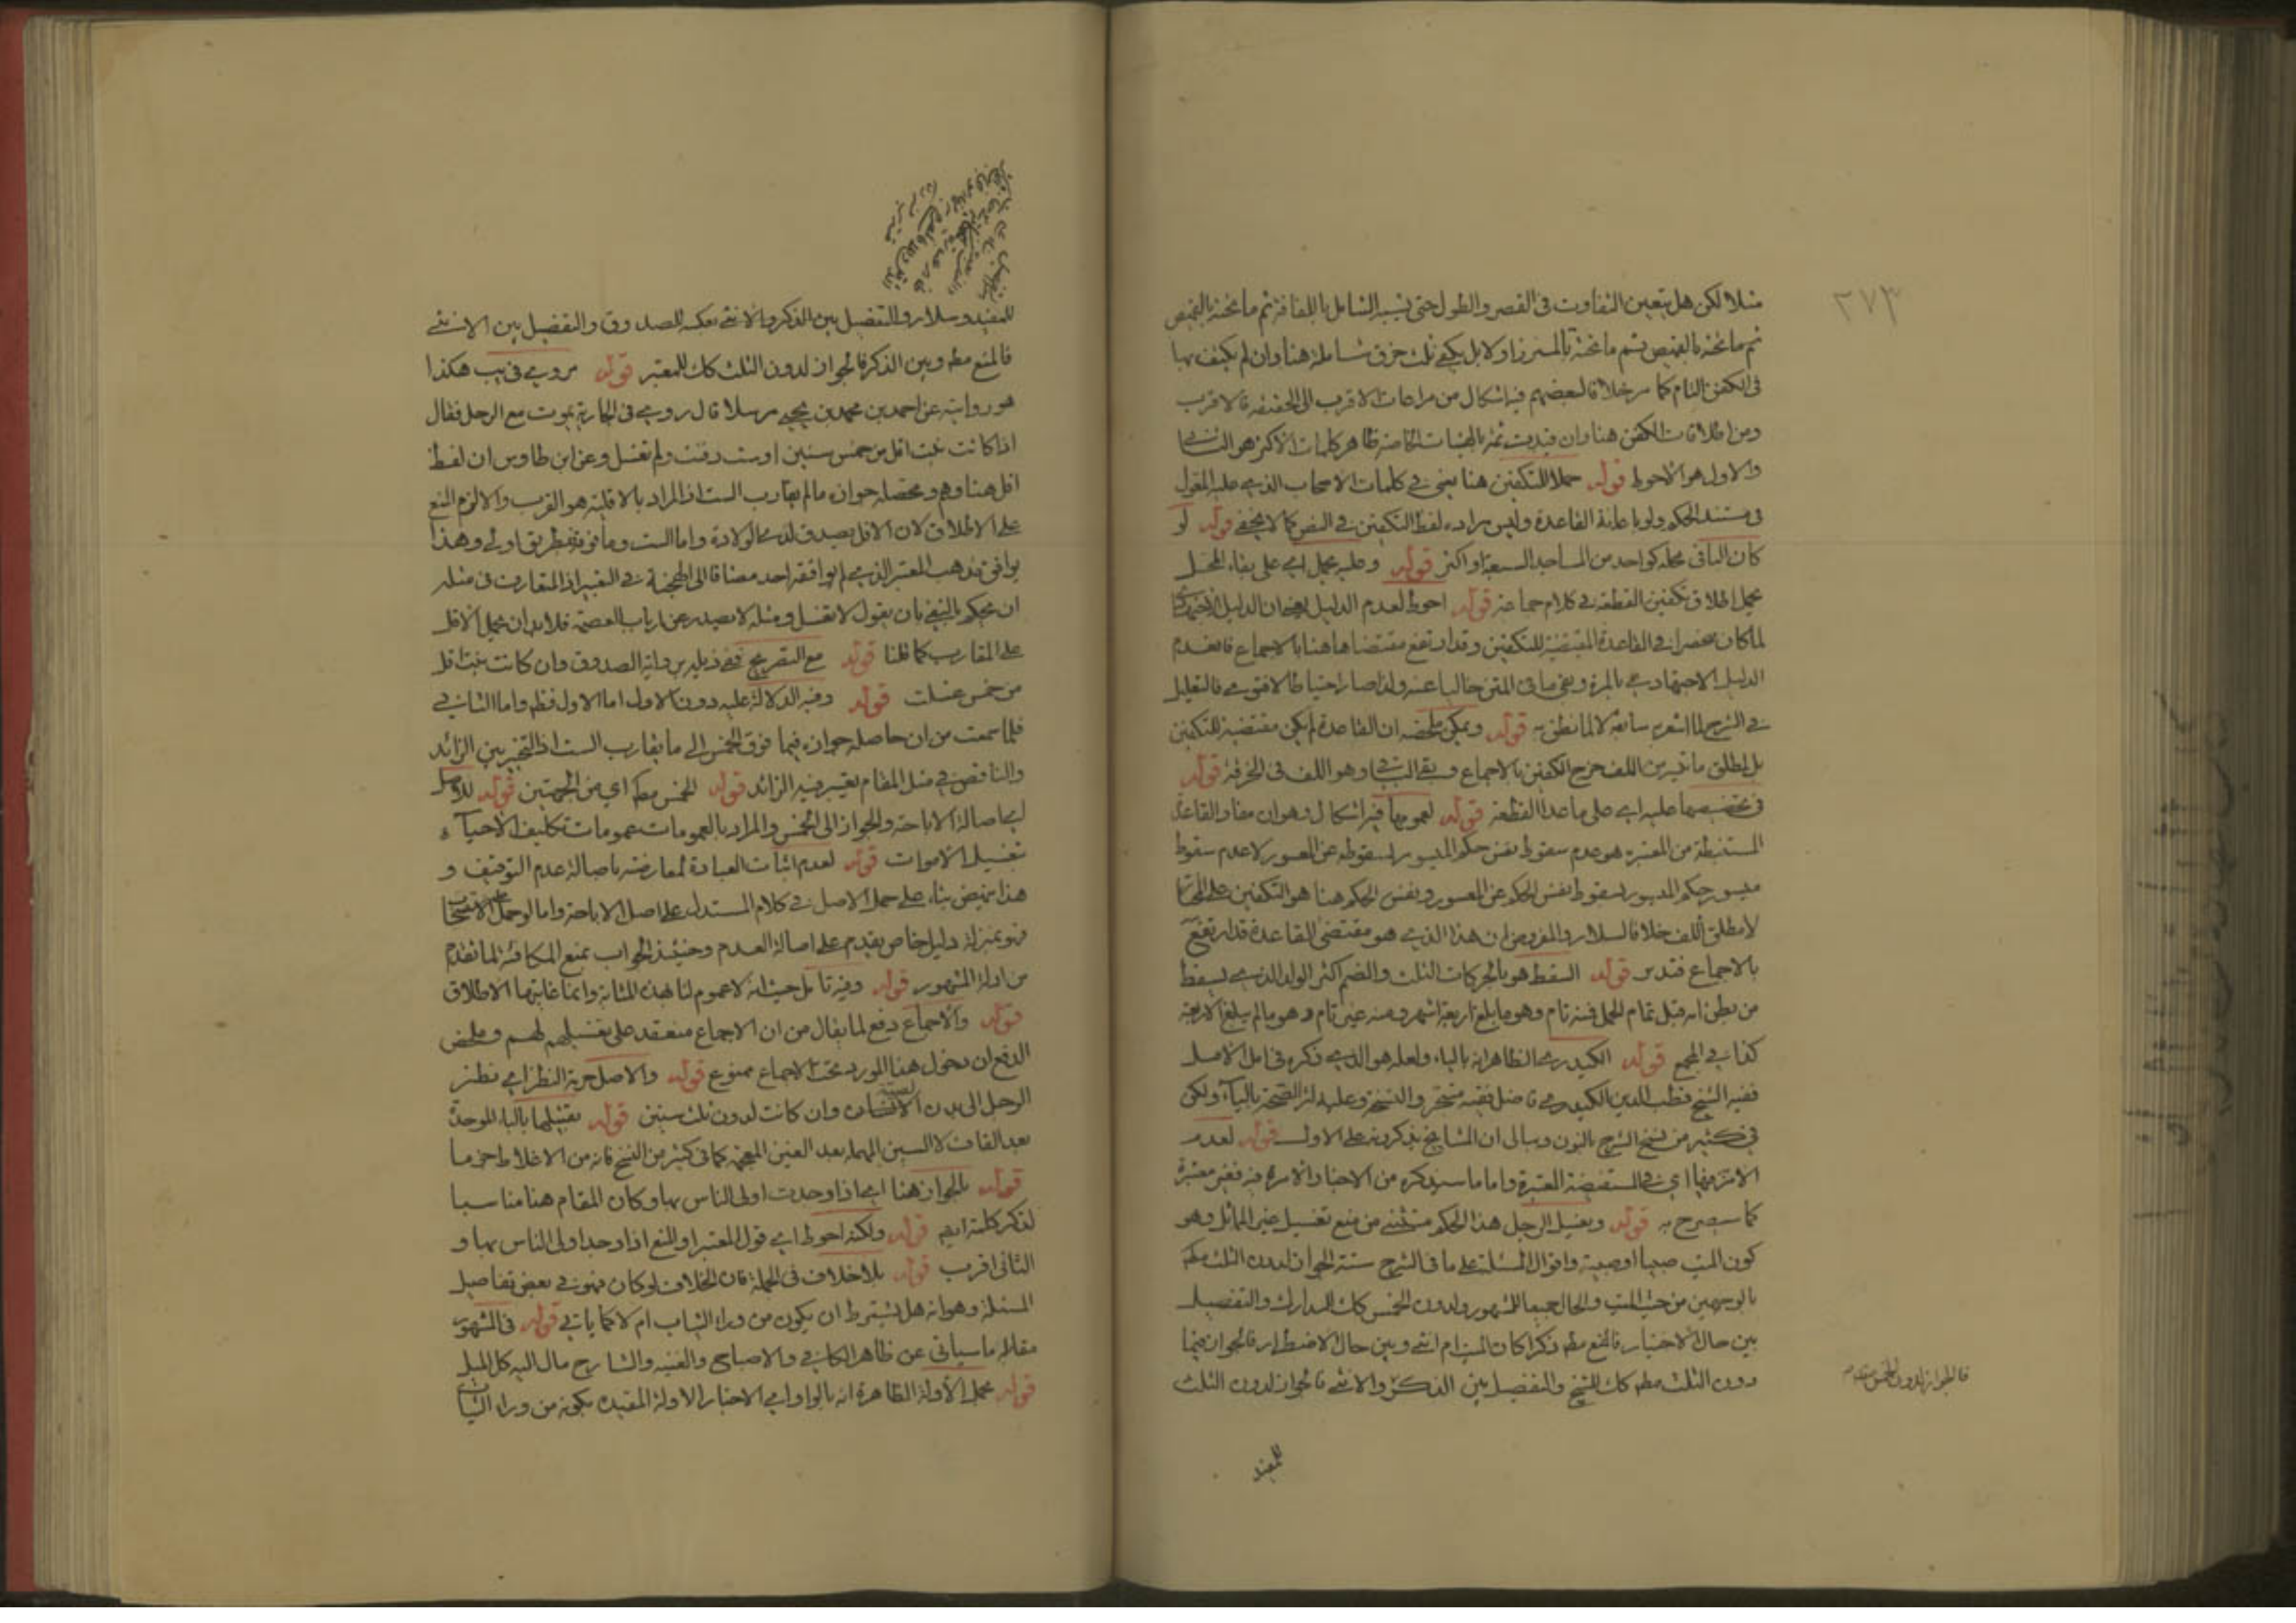 ٢٧٣
مثلا لكن هل يتعين التفاوت في القصر والطول حتى يشبه الشامل باللفافة ثم ما تحته بالقميص
ثم ما تحته بالقميص ثم ما تحته بالمئزر او لا بل يكفي ثلث خرق شاملة هنا وان لم يكتف بها
في الكفن التام كما مر خلافا لبعضهم فيه اشكال من مراعات الاقرب الى الحقيقة فالاقرب
ومن اطلاقات الكفن هنا وان قيدت ثمة بالهيئات الخاصة ظاهر كلمات الاكثر هو الثاني
والاول هو الاحوط قوله حملا للتكفين هنا يعني في كلمات الاصحاب الذي عليه المعول
في مستند الحكم ولو باعانة القاعدة وليس مراده لفظ التكفين في النص كما لا يخفى قوله لو
كان الباقي محله كواحد من المساجد السبعة او اكثر قوله وعليه يحمل اي على بقاء المحل
يحمل اطلاق تكفين القطعة في كلام جماعة قوله احوط لعدم الدليل يعني ان الدليل الاجتهادي
لما كان منحصرا في القاعدة المقتضية للتكفين وقد ارتفع مقتضاها هنا بالاجماع فانعدم
الدليل الاجتهادي بالمرة وبقي ما في المتن خاليا عنه ولذا صار احتياطا لا فتوى فالتعليل
في الشرح لما اشعر به سابقه لا لما نطق به قوله ويمكن ملخصه ان القاعدة لم يكن مقتضية للتكفين
بل لمطلق ما تيسر من اللف خرج الكفن بالاجماع وبقي الباقي وهو اللف في الخرقة قوله
في تخصيصها عليه اي على ما عدا القطعة قوله لعمومها فيه اشكال وهو ان مفاد القاعدة
المستنبطة من المعتبرة هو عدم سقوط نفس حكم الميسور لسقوطه عن المعسور لا عدم سقوط
ميسور حكم الميسور لسقوط نفس الحكم عن المعسور ونفس الحكم هنا هو التكفين على
لا مطلق اللف خلافا لسلار والمفروض ان هذا الذي هو مقتضى القاعدة قد ارتفع
بالاجماع فتدبر قوله السقط هو بالحركات الثلث والضم اكثر الولد الذي يسقط
من بطن امه قبل تمام الحمل فمنه تام وهو ما بلغ اربعة اشهر ومنه غير تام وهو ما لم يبلغ الاربعة
كذا في المجمع قوله الكيدري الظاهر انه بالياء ولعله هو الذي ذكره في امل الامل
ففيه الشيخ قطب الدين الكيدري فاضل فقيه متبحر والنسخة وعليه لا الصحة بالياء ولكن
في كثير من نسخ الشرح بالنون وببالي ان المشايخ يذكرونه على الاول قوله لعدم
الامر فيها اي في المستفيضة المعتبرة واما ما سنذكره من الاخبار الامرة فيه فغير معتبرة
كما سيصرح به قوله ويغسل الرجل هذا الحكم مستثنى من منع تغسيل غير المماثل وهو
كون الميت صبيا او صبية واقوال المسئلة على ما في الشرح ستة الجواز لدون الثلث مطم
بالوجهين من حيث الميت والحال جميعا للمشهور ولدون الخمس كك للمدارك والتفصيل
بين حال الاختيار فالمنع مطم ذكرا كان الميت ام انثى وبين حال الاضطرار فالجواز فيما
دون الثلث مطم كك للشيخ والتفصيل بين الذكر والانثى فالجواز لدون الثلث
فالجواز لدون الخمس
للمفيد
للمفيد وسلار والتفصيل بين الذكر والانثى بعكسه للصدوق والتفصيل بين الانثى
فالمنع مطم وبين الذكر فالجواز لدون الثلث كك للمعتبر قوله مروي في يب هكذا
هو روايته عن احمد بن محمد بن يحيى مرسلا قال روي في الجارية يموت مع الرجل فقال
اذا كانت بنت اقل من خمس سنين او ست دفنت ولم تغسل وعن ابن طاوس ان لفظ
اقل هنا وهم ومحصله جواز ما لم يقارب الست اذ المراد بالاقلية هو القرب والا لزم المنع
على الاطلاق لان الاقل يصدق لدى الولادة واما الست وما فوقه فبطريق اولى وهذا
يوافق مذهب المعتبر الذي لم يوافقه احد مضافا الى الهجنة في التعبير اذ المتعارف في مثله
ان يحكم بالنفي بان يقول لا تغسل ومثله لا يصدر عن ارباب العصمة فلا بد ان يحمل الاقل
على المقارب كما قلنا قوله مع التصريح ففي ذيله برواية الصدوق وان كانت بنت اقل
من خمس غسلت قوله وفيه الدلالة عليه دون الاول اما الاول فظم واما الثاني
فلما سمعت من ان حاصله جوازه فيما فوق الخمس الى ما يقارب الست اذ التخيير بين الزائد
والناقص في مثل المقام يعتبر فيه الزائد قوله للخمس مطم اي من الجهتين قوله للاصل
اي اصالة الاباحة والجواز الى الخمس والمراد بالعمومات عمومات تكليف الاحياء
تغسيل الاموات قوله لعدم اثبات العبادة لمعارضته باصالة عدم التوقيف و
هذا ينهض بناء على حمل الاصل في كلام المستدل على اصل الاباحة واما لو حمل على الاستصحاب
فهو بمنزلة دليل خاص يقدم على اصالة العدم وحينئذ الجواب بمنع المكافئة لما تقدم
من ادلة المشهور قوله وفيه تامل حيث انه لا عموم لنا بهذه المثابة وانما غايتها الاطلاق
قوله والاجماع دفع لما يقال من ان الاجماع منعقد على تغسيلهم لهم وملخص
الدفع ان دخول هذا المورد تحت الاجماع ممنوع قوله والاصل حرمة النظر اي نظر
الرجل الى بدن وان كانت لدون ثلث سنين قوله بالباء الموحدة
بعد القاف لا السين المهملة بعد الغين المعجمة كما في كثير من النسخ فانه من الاغلاط جزما
قوله بالجواز هنا اي اذا وجدت اولى الناس بها وكان المقام هنا مناسبا
لذكر كلمة ايضم قوله ولكنه احوط اي قول المعتبر او المنع اذا وجد اولى الناس بها و
الثاني اقرب قوله بلا خلاف في الجملة فان الخلاف لو كان فهو في بعض تفاصيل
المسئلة وهو انه هل يشترط ان يكون من وراء الثياب ام لا كما ياتي قوله في المشهور
مقابله ما سياتي عن ظاهر الكافي والاصباح والغنية والشارح مال اليه كل الميل
قوله يحمل الاولة الظاهرة انه بالواو اي الاخبار الاولة المقيده بكونه من وراء الثياب